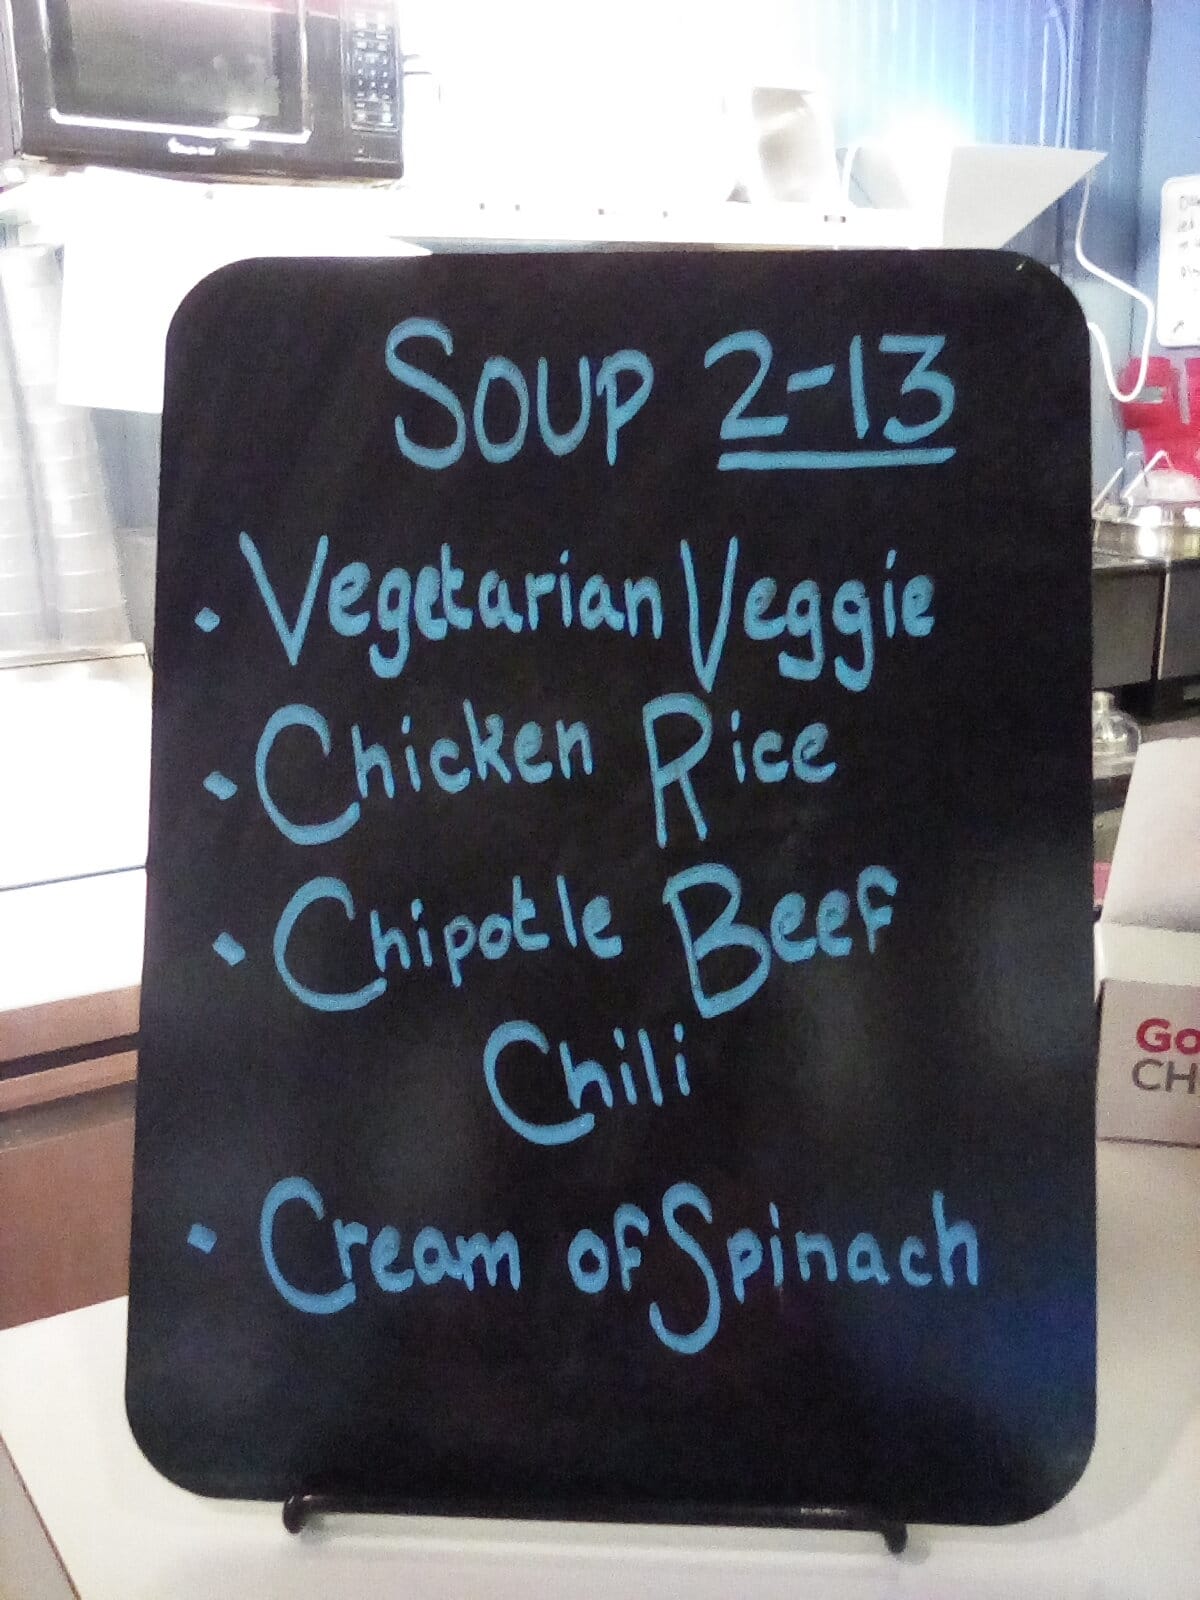 SOUP 2-13
• Vegetarian Veggie
• Chicken Rice
• Chipotle Beef
Chili
• Cream of Spinach
Go
CH